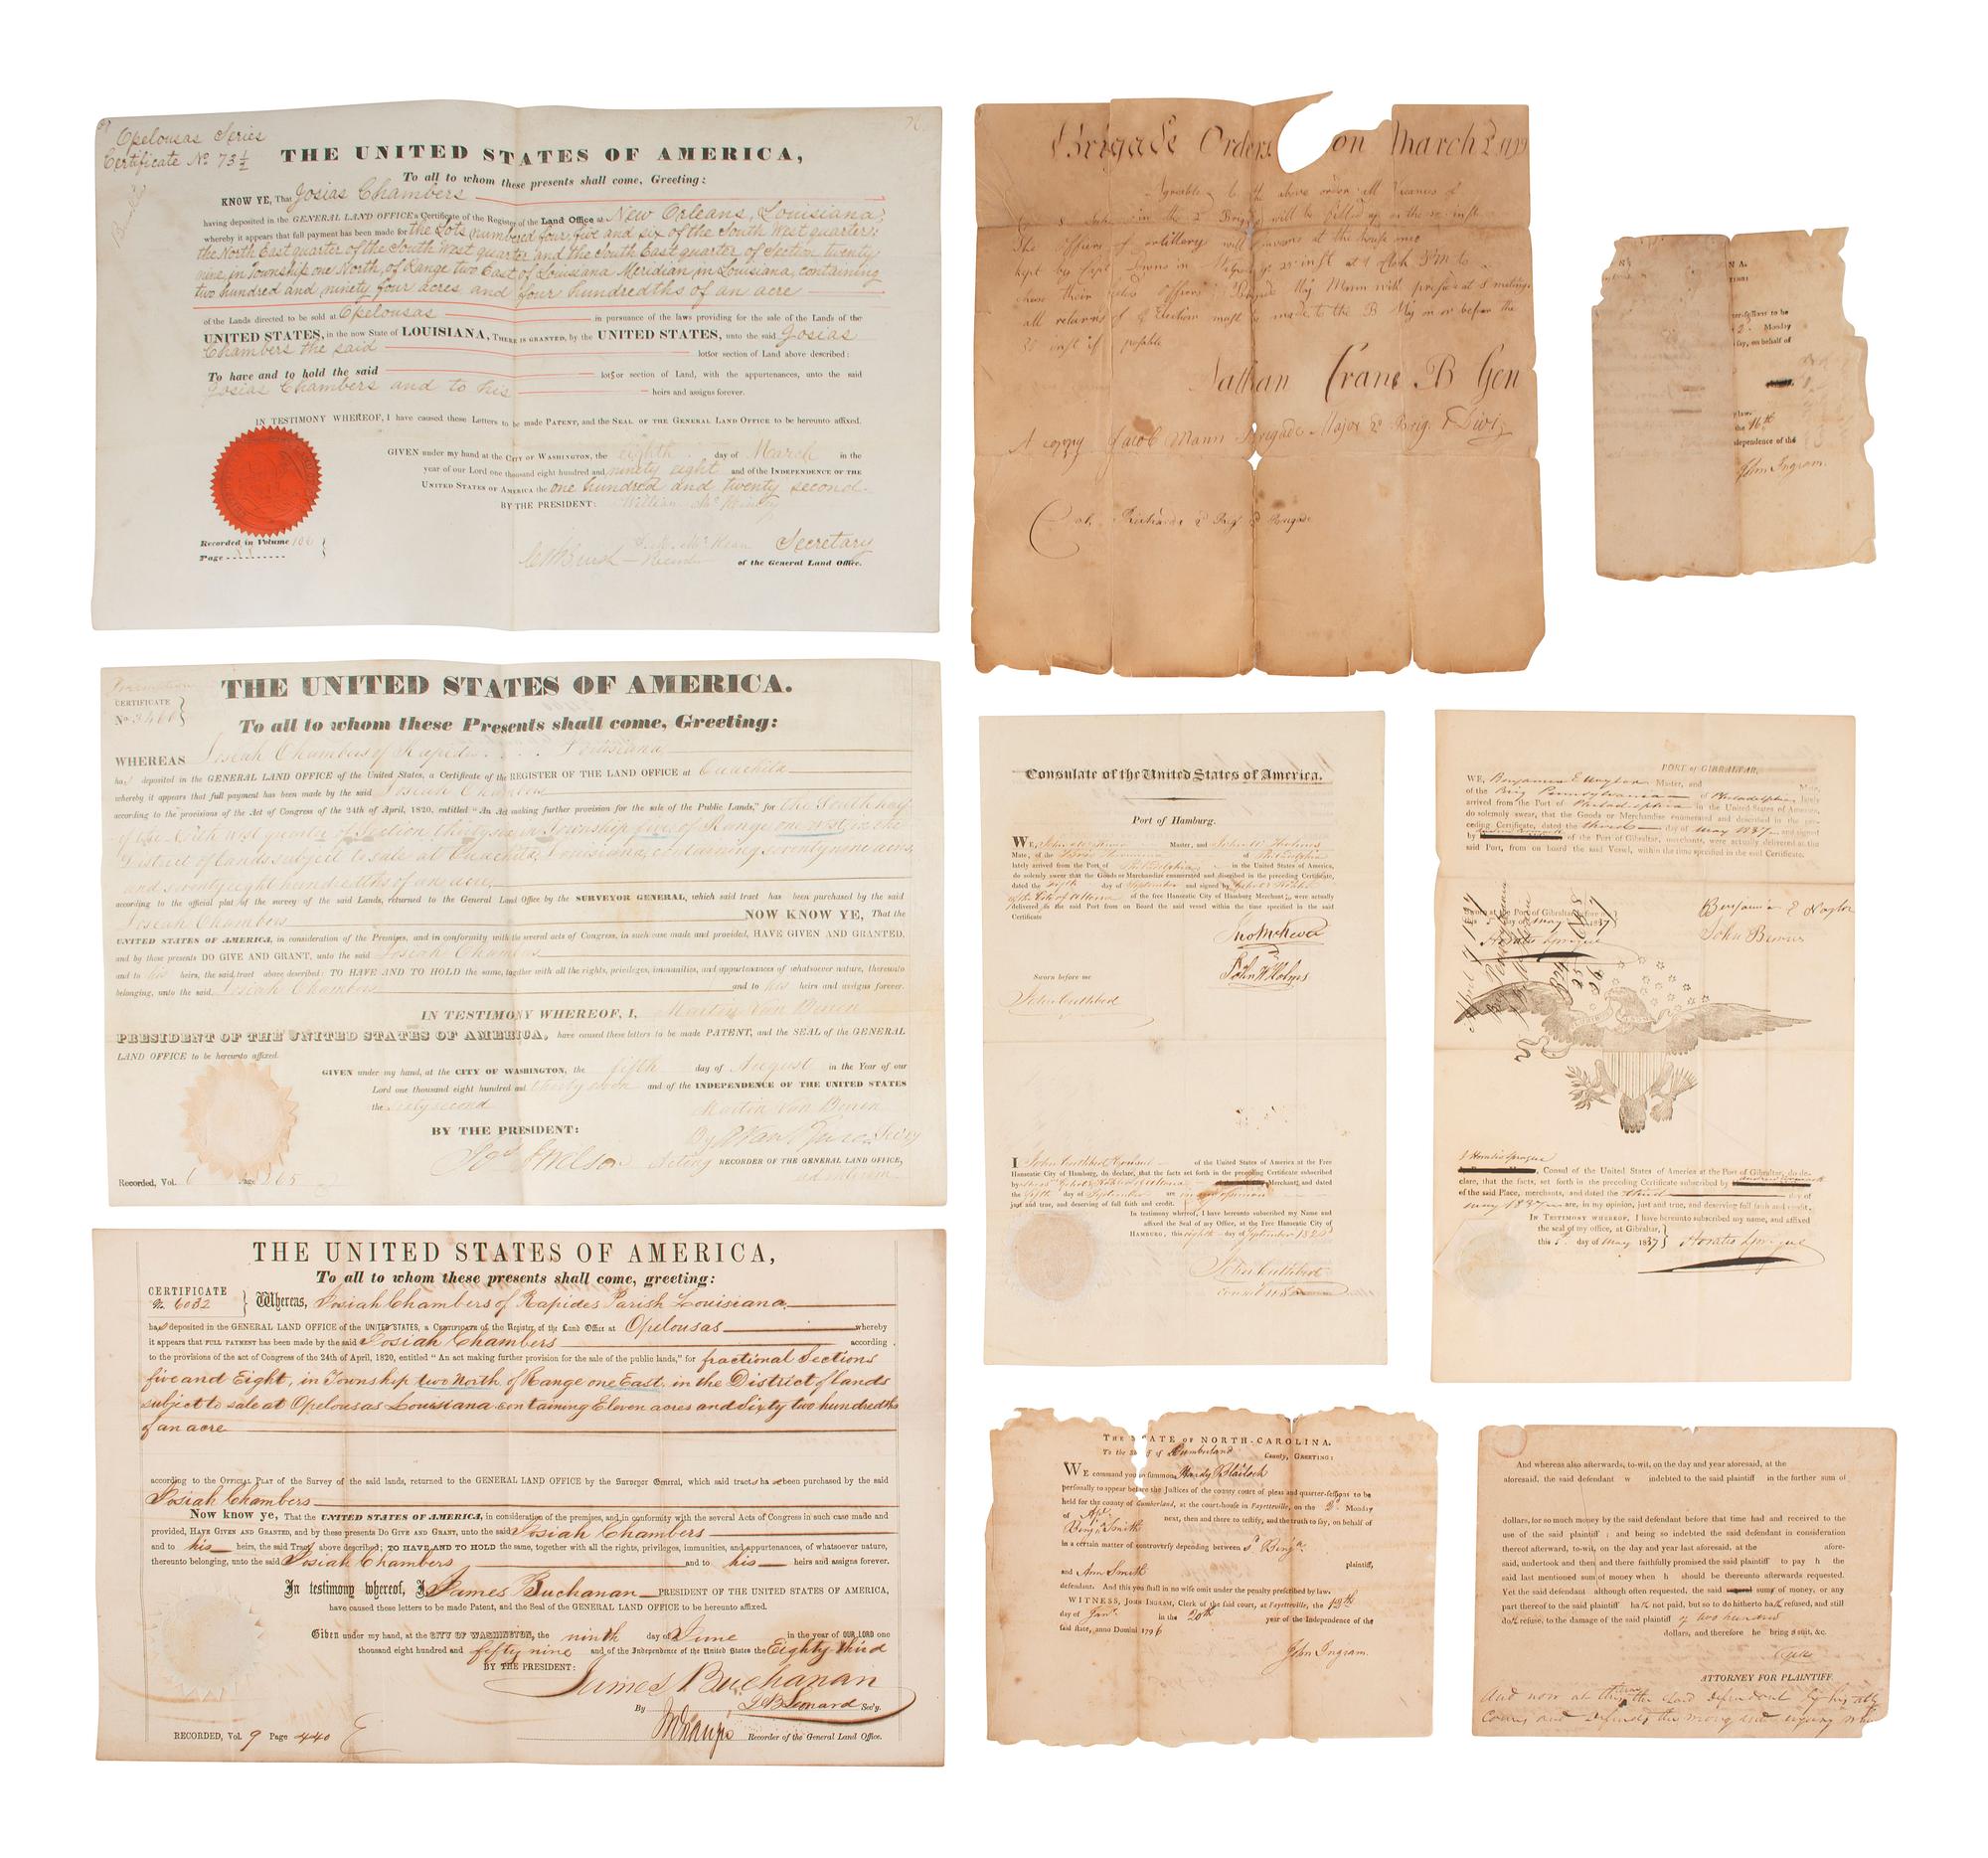 Opelousas Series
Certificate No 73½
THE UNITED STATES OF AMERICA,
To all to whom these presents shall come, Greeting:
KNOW YE, That Josias Chambers
having deposited in the GENERAL LAND OFFICE a Certificate of the Register of the Land Office at New Orleans, Louisiana,
whereby it appears that full payment has been made for the Lots numbered four, five and six of the South West quarter;
the North East quarter of the South West quarter and the South East quarter of Section twenty
nine, in Township one North, of Range two East, of Louisiana Meridian in Louisiana, containing
two hundred and ninety four acres and four hundredths of an acre
of the Lands directed to be sold at Opelousas in pursuance of the laws providing for the sale of the Lands of the
UNITED STATES, in the now State of LOUISIANA, THERE IS GRANTED, by the UNITED STATES, unto the said Josias
Chambers the said lots or section of Land above described:
To have and to hold the said lots or section of Land, with the appurtenances, unto the said
Josias Chambers and to his heirs and assigns forever.
IN TESTIMONY WHEREOF, I have caused these Letters to be made PATENT, and the SEAL OF THE GENERAL LAND OFFICE to be hereunto affixed.
GIVEN under my hand at the CITY OF WASHINGTON, the eighth day of March in the
year of our Lord one thousand eight hundred and ninety eight and of the INDEPENDENCE OF THE
UNITED STATES OF AMERICA the one hundred and twenty second
BY THE PRESIDENT: William McKinley
Secretary
Recorded in Volume
Page
of the General Land Office.
THE UNITED STATES OF AMERICA.
CERTIFICATE
No 3460
To all to whom these Presents shall come, Greeting:
WHEREAS Josiah Chambers of Rapides Louisiana
has deposited in the GENERAL LAND OFFICE of the United States, a Certificate of the REGISTER OF THE LAND OFFICE at Ouachita
whereby it appears that full payment has been made by the said Josiah Chambers
according to the provisions of the Act of Congress of the 24th of April, 1820, entitled "An Act making further provision for the sale of the Public Lands," for the South half
of the North West quarter of Section thirty six in Township five of Range one West in the
District of lands subject to sale at Ouachita, Louisiana, containing seventy nine acres,
and seventy eight hundredths of an acre,
according to the official plat of the survey of the said Lands, returned to the General Land Office by the SURVEYOR GENERAL, which said tract has been purchased by the said
Josiah Chambers NOW KNOW YE, That the
UNITED STATES OF AMERICA, in consideration of the Premises, and in conformity with the several acts of Congress, in such case made and provided, HAVE GIVEN AND GRANTED,
and by these presents DO GIVE AND GRANT, unto the said Josiah Chambers
and to his heirs, the said tract above described: TO HAVE AND TO HOLD the same, together with all the rights, privileges, immunities, and appurtenances of whatsoever nature, thereunto
belonging, unto the said Josiah Chambers and to his heirs and assigns forever.
IN TESTIMONY WHEREOF, I, Martin Van Buren
PRESIDENT OF THE UNITED STATES OF AMERICA, have caused these letters to be made PATENT, and the SEAL of the GENERAL
LAND OFFICE to be hereunto affixed.
GIVEN under my hand, at the CITY OF WASHINGTON, the fifth day of August in the Year of our
Lord one thousand eight hundred and thirty seven and of the INDEPENDENCE OF THE UNITED STATES
the sixty second
Martin Van Buren
BY THE PRESIDENT:
By Van Buren, Sec'y
Acting RECORDER OF THE GENERAL LAND OFFICE,
ad interim
Recorded, Vol. 6 Page 265
THE UNITED STATES OF AMERICA,
To all to whom these presents shall come, greeting:
CERTIFICATE
No. 6032
Whereas, Josiah Chambers of Rapides Parish Louisiana
has deposited in the GENERAL LAND OFFICE of the UNITED STATES, a Certificate of the Register, of the Land Office at Opelousas whereby
it appears that FULL PAYMENT has been made by the said Josiah Chambers according
to the provisions of the act of Congress of the 24th of April, 1820, entitled "An act making further provision for the sale of the public lands," for fractional Sections
five and Eight, in Township two North of Range one East, in the District of lands
subject to sale at Opelousas Louisiana containing Eleven acres and Sixty two hundredths
of an acre
according to the OFFICIAL PLAT of the Survey of the said lands, returned to the GENERAL LAND OFFICE by the Surveyor General, which said tracts has been purchased by the said
Josiah Chambers
Now know ye, That the UNITED STATES OF AMERICA, in consideration of the premises, and in conformity with the several Acts of Congress in such case made and
provided, HAVE GIVEN AND GRANTED, and by these presents DO GIVE AND GRANT, unto the said Josiah Chambers
and to his heirs, the said Tract above described; TO HAVE AND TO HOLD the same, together with all the rights, privileges, immunities, and appurtenances, of whatsoever nature,
thereunto belonging, unto the said Josiah Chambers and to his heirs and assigns forever.
In testimony whereof, I, James Buchanan PRESIDENT OF THE UNITED STATES OF AMERICA,
have caused these letters to be made Patent, and the Seal of the GENERAL LAND OFFICE to be hereunto affixed.
Given under my hand, at the CITY OF WASHINGTON, the ninth day of June in the year of OUR LORD one
thousand eight hundred and fifty nine and of the Independence of the United States the Eighty third
BY THE PRESIDENT: James Buchanan
By J. B. Leonard Sec'y.
RECORDED, Vol. 9 Page 440
Recorder of the General Land Office.
Brigade Orders on March 2
Agreable to the above orders all Vacances of
in the 2 Brigade will be filled up on the inst
The officers of artillary will convene at the house
kept by Capt Downs in inst at
chose their Officers Brigade Maj Mann will preside at meeting
all returns of Election must be made to the B Maj on or before the
inst if posable
Nathan Crane B Gen
A coppy Jacob Mann Brigade Major 2 Brig Divi
Col. Richards Brigade
2 Monday
say, on behalf of
16th
dependence of the
John Ingram.
Consulate of the United States of America.
Port of Hamburg.
WE, Master, and John W Holmes
Mate, of the of Philadelphia
lately arrived from the Port of Philadelphia in the United States of America,
do solemnly swear that the Goods or Merchandize enumerated and discribed in the preceding Certificate,
dated the fifth day of September and signed by
of the City of Altona of the free Hanseatic City of Hamburg Merchant, were actually
delivered at the said Port from on Board the said vessel within the time specified in the said
Certificate
John W Holmes
Sworn before me
John Cuthbert
I John Cuthbert Consul of the United States of America at the Free
Hanseatic City of Hamburg, do declare, that the facts set forth in the preceding Certificate subscribed
by Merchant, and dated
the fifth day of September are in my opinion
just and true, and deserving of full faith and credit.
In testimony whereof, I have hereunto subscribed my Name and
affixed the Seal of my Office, at the Free Hanseatic City of
HAMBURG, this eighth day of September
John Cuthbert
PORT of GIBRALTAR,
WE, Benjamin E Naylor Master, and Mate,
of the Brig Pennsylvania of Philadelphia, lately
arrived from the Port of Philadelphia in the United States of America,
do solemnly swear, that the Goods or Merchandise enumerated and described in the pre-
ceding Certificate, dated the third day of May 1837 and signed
by of the Port of Gibraltar, merchants, were actually delivered at the
said Port, from on board the said Vessel, within the time specified in the said Certificate.
Sworn at the Port of Gibraltar before me
this day of May 1837
Horatio Sprague
Benjamin E Naylor
John Brown
I Horatio Sprague
Consul of the United States of America at the Port of Gibraltar, do de-
clare, that the facts, set forth in the preceding Certificate subscribed by
of the said Place, merchants, and dated the third day of
May 1837 are, in my opinion, just and true, and deserving full faith and credit.
IN TESTIMONY WHEREOF, I have hereunto subscribed my name, and affixed
the seal of my office, at Gibraltar,
this 5 day of May 1837 Horatio Sprague
THE STATE OF NORTH-CAROLINA.
To the of Cumberland County, GREETING:
WE command you to summon Hardy Blalock
personally to appear before the Justices of the county court of pleas and quarter-sessions to be
held for the county of Cumberland, at the court-house in Fayetteville, on the 2 Monday
of Apl next, then and there to testify, and the truth to say, on behalf of
Benjn Smith
in a certain matter of controversy depending between sd Benjn
plaintiff,
and Ann Smith
defendant. And this you shall in no wise omit under the penalty prescribed by law.
WITNESS, JOHN INGRAM, Clerk of the said court, at Fayetteville, the 12th
day of Jany in the 20th year of the Independence of the
said state, anno Domini 1796
John Ingram.
And whereas also afterwards, to-wit, on the day and year aforesaid, at the
aforesaid, the said defendant w indebted to the said plaintiff in the further sum of
dollars, for so much money by the said defendant before that time had and received to the
use of the said plaintiff ; and being so indebted the said defendant in consideration
thereof afterward, to-wit, on the day and year last aforesaid, at the afore-
said, undertook and then and there faithfully promised the said plaintiff to pay h the
said last mentioned sum of money when h should be thereunto afterwards requested.
Yet the said defendant although often requested, the said sums of money, or any
part thereof to the said plaintiff hath not paid, but so to do hitherto hath refused, and still
doth refuse, to the damage of the said plaintiff of two hundred
dollars, and therefore he brings suit, &c.
ATTORNEY FOR PLAINTIFF.
And now at this the said defendant by his atty
comes and defends the wrong and injury when